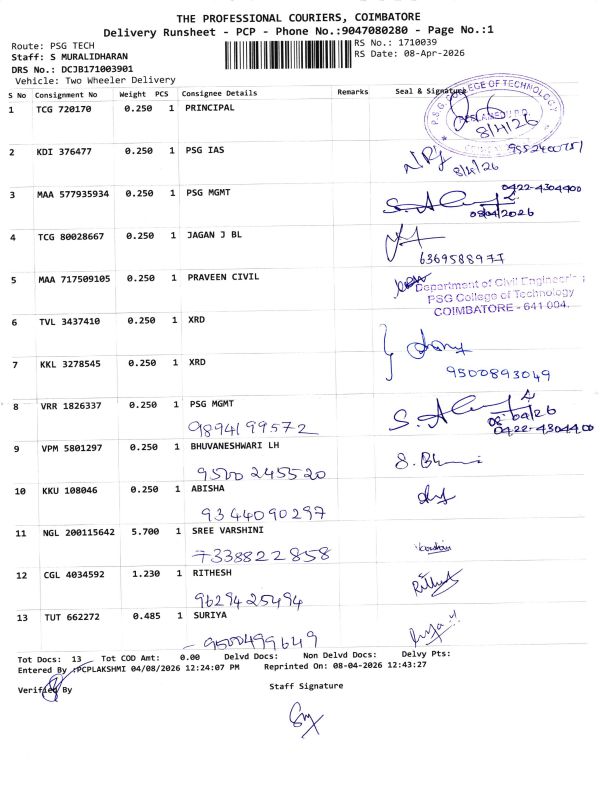 THE PROFESSIONAL COURIERS, COIMBATORE
Delivery Runsheet - PCP - Phone No.:9047080280 - Page No.:1
Route: PSG TECH
RS No.: 1710039
Staff: S MURALIDHARAN
RS Date: 08-Apr-2026
DRS No.: DCJB171003901
Vehicle: Two Wheeler Delivery
S No Consignment No Weight PCS Consignee Details Remarks Seal & Signature
P.S.G. COLLEGE OF TECHNOLOGY
1 TCG 720170 0.250 1 PRINCIPAL
8/4/26
2 KDI 376477 0.250 1 PSG IAS
8/4/26
3 MAA 577935934 0.250 1 PSG MGMT
0422-4304400
08/04/2026
4 TCG 80028667 0.250 1 JAGAN J BL
6369588977
5 MAA 717509105 0.250 1 PRAVEEN CIVIL
Department of Civil Engineering
PSG College of Technology
COIMBATORE - 641 004.
6 TVL 3437410 0.250 1 XRD
7 KKL 3278545 1 0.250 XRD
9500893049
8 VRR 1826337 0.250 1 PSG MGMT
9894199572
08/04/26
0422-4304400
9 VPM 5801297 0.250 1 BHUVANESHWARI LH
9500 245520
10 KKU 108046 0.250 1 ABISHA
9344090297
11 NGL 200115642 5.700 1 SREE VARSHINI
7338822858
12 CGL 4034592 1.230 1 RITHESH
9629425494
13 TUT 662272 0.485 1 SURIYA
9500499649
Tot Docs: 13 Tot COD Amt: 0.00 Delvd Docs: Non Delvd Docs: Delvy Pts:
Entered By :PCPLAKSHMI 04/08/2026 12:24:07 PM Reprinted On: 08-04-2026 12:43:27
Verified By
Staff Signature